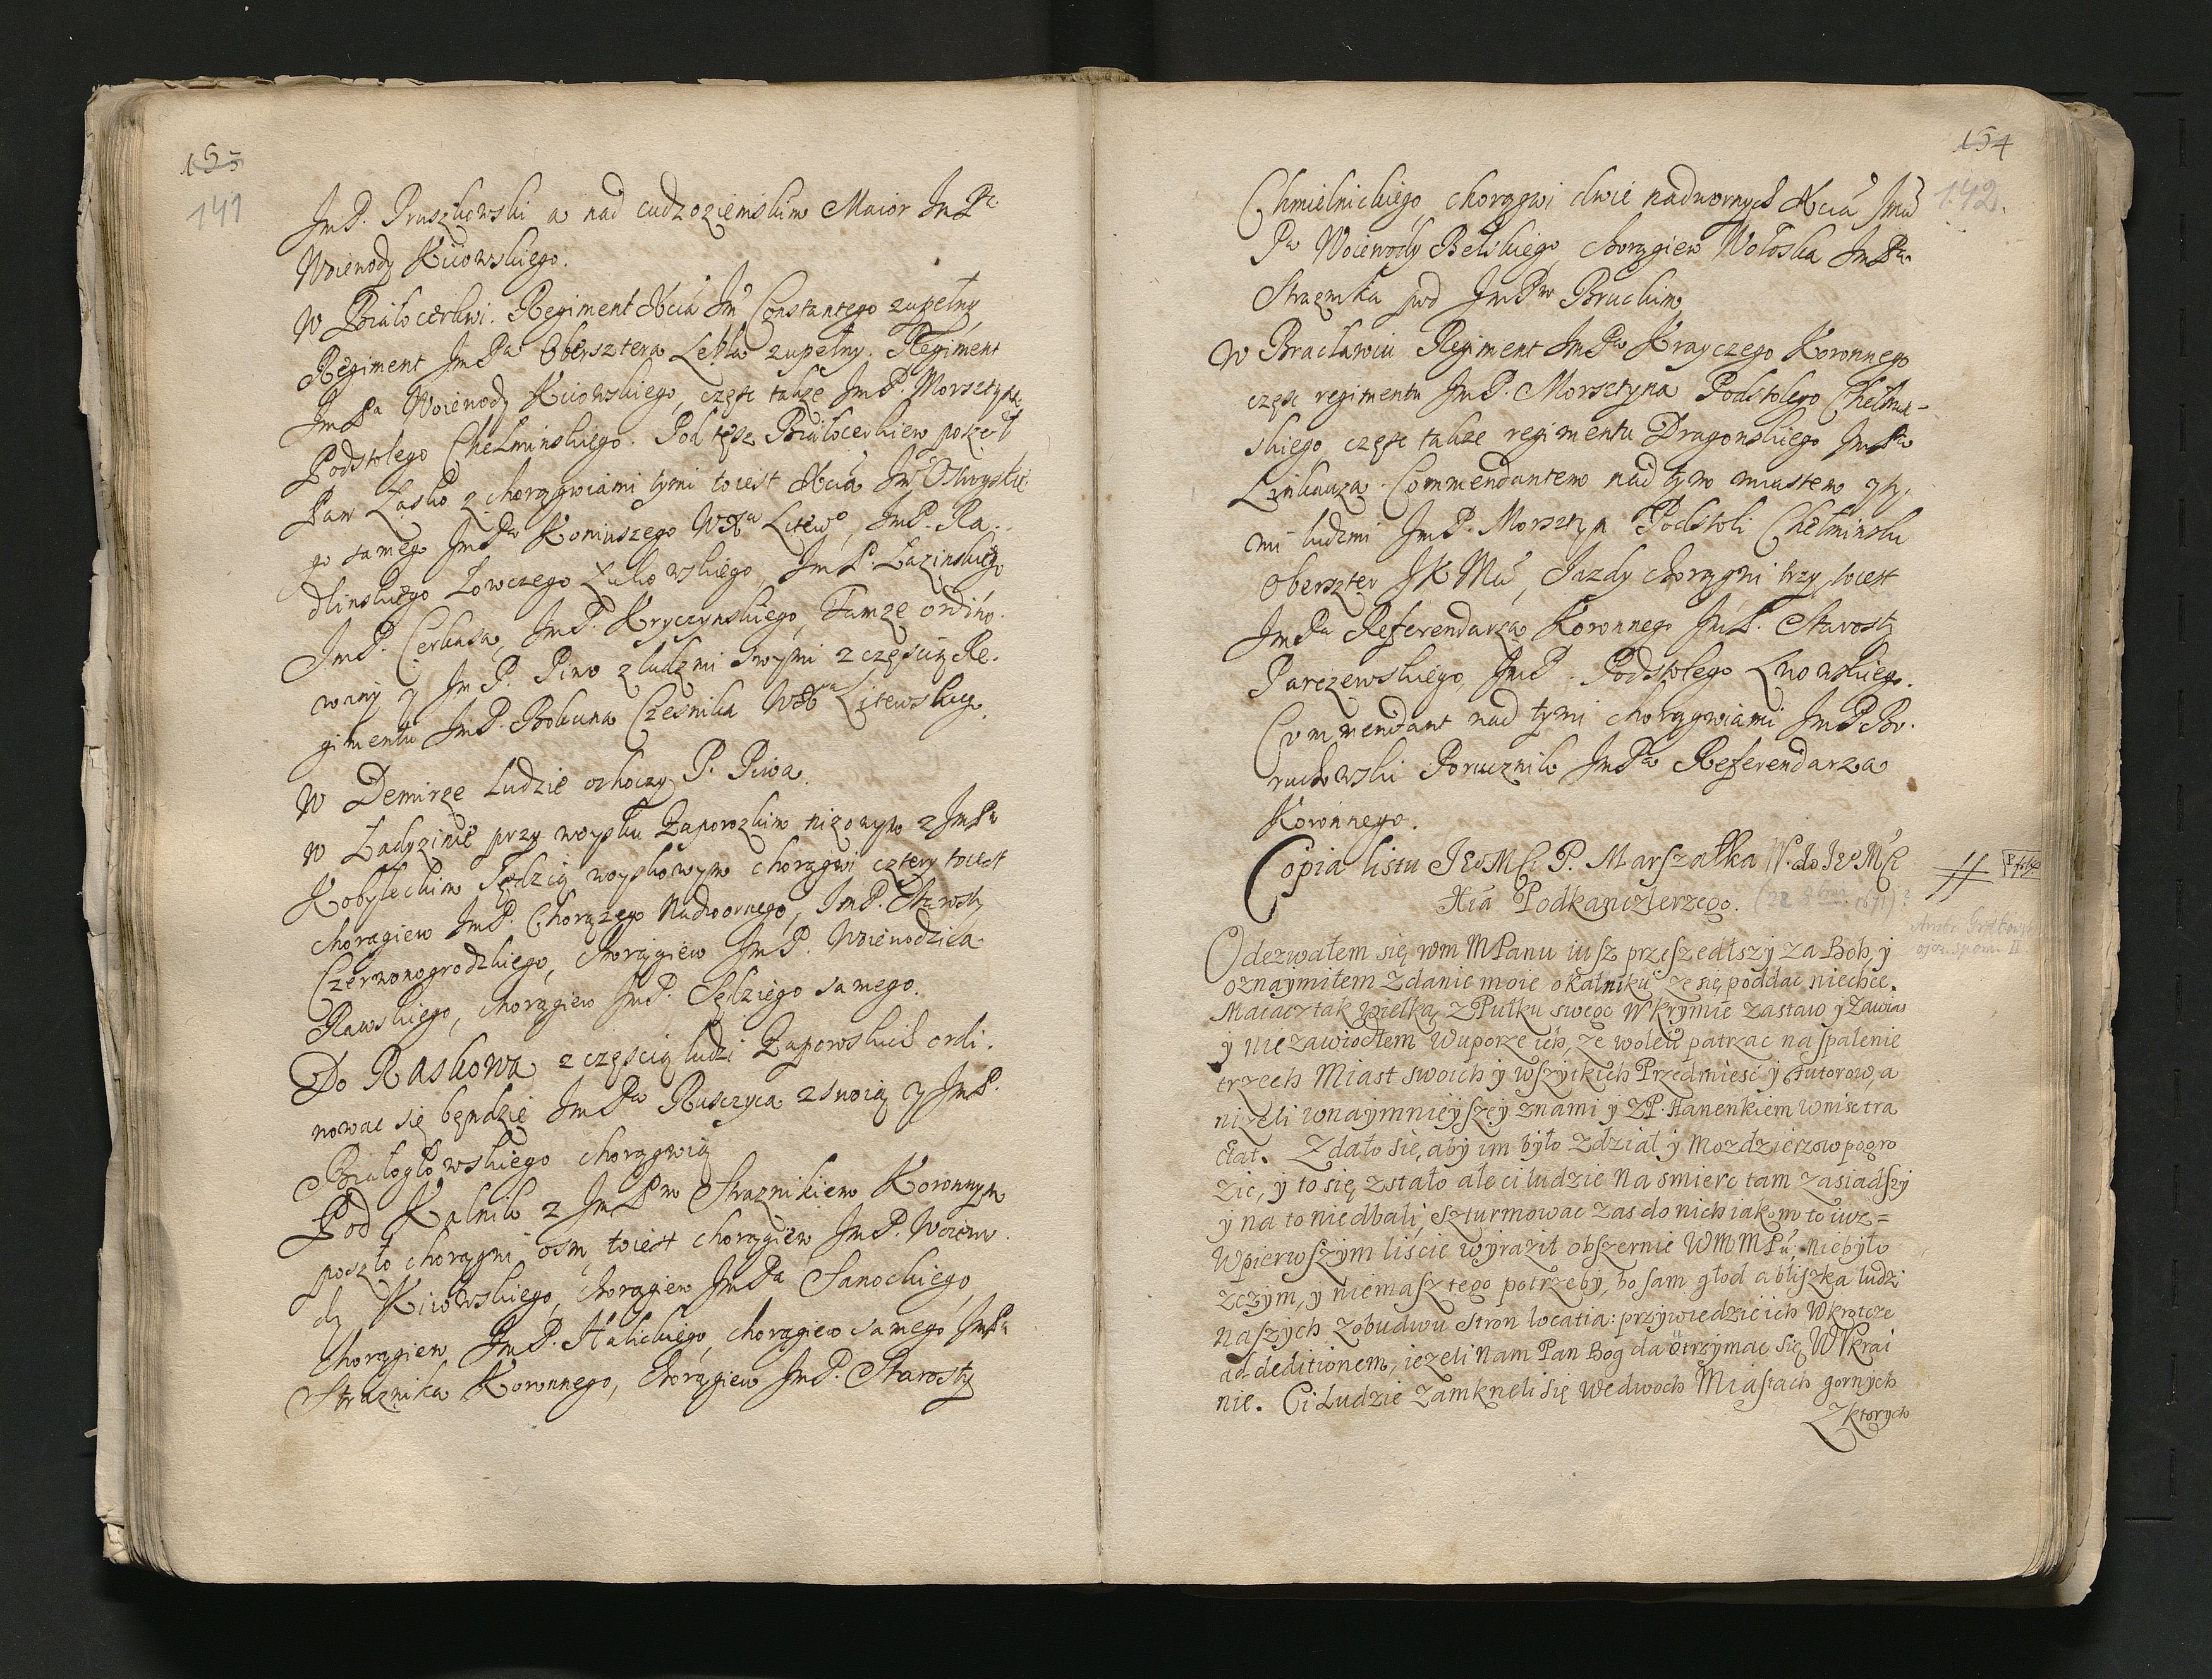 153
141
JmP. Pruszkowski a nad cudzoziemskim Maior JmPa
Woiewody Kiiowskiego.
W Białocerkwi. Regiment Xcia Jm Constantego zupełny,
Regiment JmPa Obersztera Lekla zupełny. Regiment
JmPa Woiewody Kiiowskiego, częsc takze JmP. Morsztyna
Podstolego Chełminskiego. Pod tęsz Białocerkiew poszedł
Pan Łasko z chorągwiami tymi toiest Xcia Jm Ostrogskie
go samego JmPa Koniuszego WXa Litewo, JmP. Ra.
dlinskiego Łowczego, JmP. Łazinskiego
JmP. Cerkasa, JmP. Kryczynskiego, Tamze ordino.
wany y JmP. Piwo z ludzmi swymi z częscią Re.
gimentu JmP. Bokuna Czesnika WXa Litewskiego.
W Demirze Ludzie ochoczy P. Piwa.
W Ładyzinie przy woysku Zaporozkim nizowym z JmPa
Kobyleckim Sędzią woyskowym chorągwi cztery toiest
chorągiew JmP. Chorązego Nadwornego, JmP. Starosty
Czerwonogrodzkiego, chorągiew JmP. Woiewodzica
Rawskiego, chorągiew JmP. Sędziego samego.
Do Raskowa z częscią ludzi Zaporowskich ordi.
nowac się będzie JmPa Ruszczyca z swoią y JmP.
Białogłowskiego chorągwią
Pod Kalnik z JmPm Straznikiem Koronnym
poszło chorągwi osm, toiest chorągiew JmP. Woiewo.
dy Kiiowskiego, chorągiew JmPa Sanockiego,
chorągiew JmP. Halickiego, chorągiew samego JmPa
Straznika Koronnego, chorągiew JmP. Starosty
154
142.
Chmielnickiego, chorągwi dwie nadwornych Xcia Jmci
Pa Woiewody Bełskiego, chorągiew Wołoska JmPa
Straznika pod JmPm Bruckim,
W Bracławiu Regiment JmPa Krayczego Koronnego
częsc regimentu JmP. Morsztyna Podstolego Chełmin-
skiego, częsc takze regimentu Dragonskiego JmPa
Linkauza. Commendantem nad tym miastem y ty.
mi ludzmi JmP. Morsztyn Podstoli Chełminski
Oberszter JKMci, Jazdy chorągwi trzy, toiest
JmPa Referendarza Koronnego JmP. Starosty
Parczewskiego, JmP. Podstolego Lwowskiego.
Commendant nad tymi chorągwiami JmP Bo.
ruchowski Porucznik JmPa Referendarza
Koronnego.
Copia listu JeoMCi P. Marszałka W. do JeoMCi
Xia Podkanczlerzego.
Odezwałem się wm MPanu iusz przeszedłszy za Boh, y
oznaymiłem Zdanie moie o Kalniku ze się poddac niechce.
Macacz tak wielką z Pułku swego W krymie zastaw y Zawias
y nie zawiodłem W uporze ich, ze woleli patrzac na spalenie
trzech Miast swoich y wszytkich Przedmiesc y Futorow, a
nizeli w naymnieyszey z nami y z P. Hanenkiem wnisc tra
ctat. Zdało się, aby im było z dział y Mozdzierzow pogro
zic, y to się zstało ale ci ludzie na smierc tam zasiadszy
y na to niedbali, szturmowac zas do nich iakom to iusz =
W pierwszym liscie wyraził obszernie WMMPu, niebyło
zczym, y niemasz tego potrzeby, bo sam głod a bliszka ludzi
naszych z obudwu stron locatia: przywiedzie ich W krotcze
ad deditionem, iezeli nam Pan Bog da otrzymac się W Vkrai
nie. Ci Ludzie zamkneli się we dwoch Miastach gornych
Z ktorych